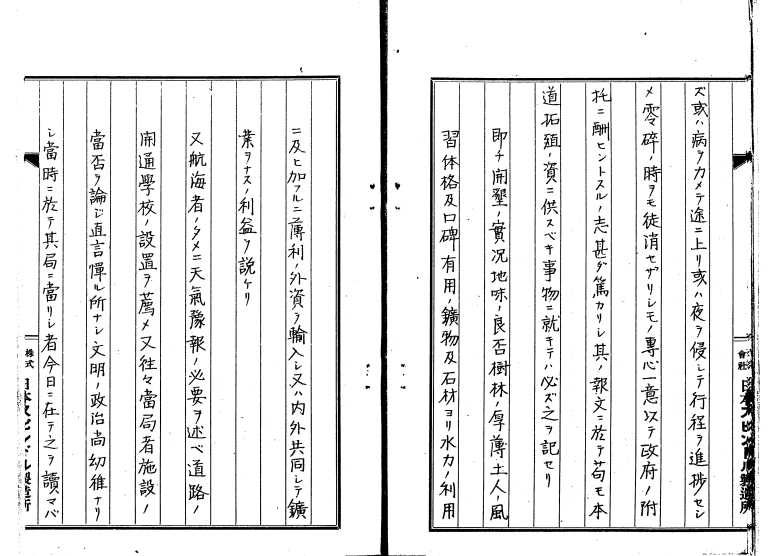 ズ或ハ病ヲカメテ途ニ上リ或ハ夜ヲ侵シテ行程ヲ進捗セシ
メ零碎ノ時ヲモ徒消セザリシモノ專心一意以テ政府ノ附
托ニ酬ヒントスルノ志甚ダ篤カリシ其ノ報文ニ於テ苟モ本
道拓殖ノ資ニ供スベキ事物ニ就キテハ必ズ之ヲ記セリ
即チ開墾ノ實況地味ノ良否樹林ノ厚薄土人ノ風
習体格及口碑有用ノ鑛物及石材ヨリ水力ノ利用
ニ及ヒ加フルニ薄利ノ外資ヲ輸入シ又ハ内外共同シテ鑛
業ヲナスノ利益ヲ說ケリ
又航海者ノタメニ天氣豫報ノ必要ヲ述ベ道路ノ
開通學校ノ設置ヲ薦メ又往々當局者施設ノ
當否ヲ論ジ直言憚ル所ナシ文明ノ政治尚幼稚ナリ
シ當時ニ於テ其局ニ當リシ者今日ニ在テ之ヲ讀マバ
株式
會社
日本スピンドル製造所